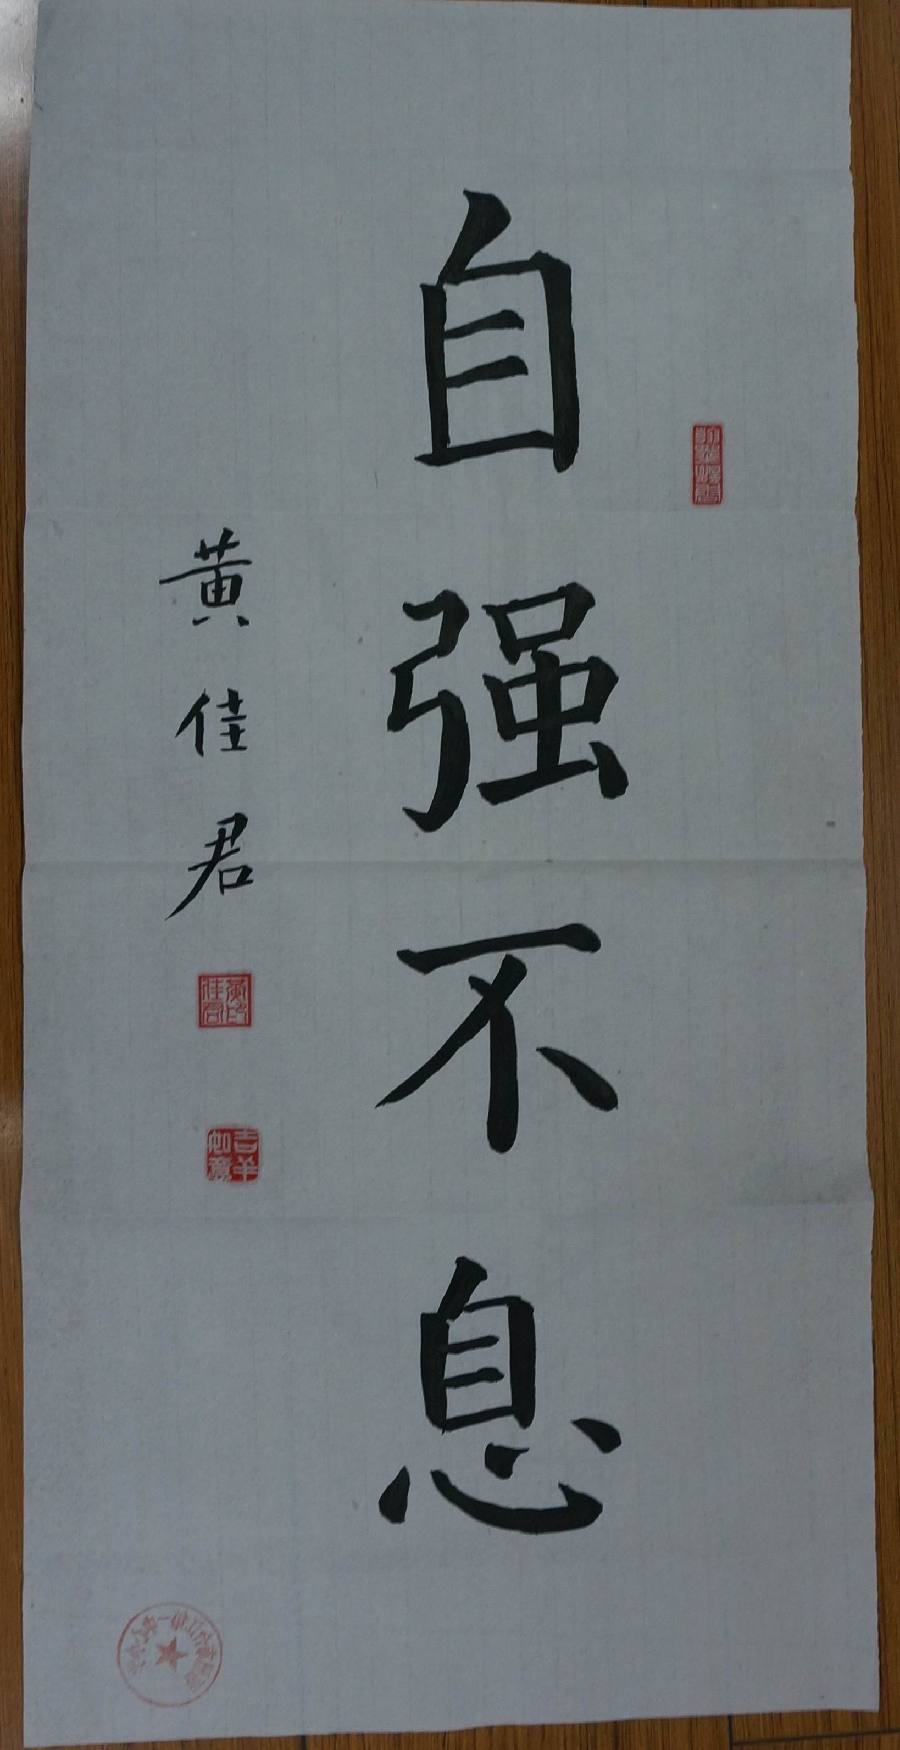 自强不息
黄佳君
黄印佳君
吉羊如意